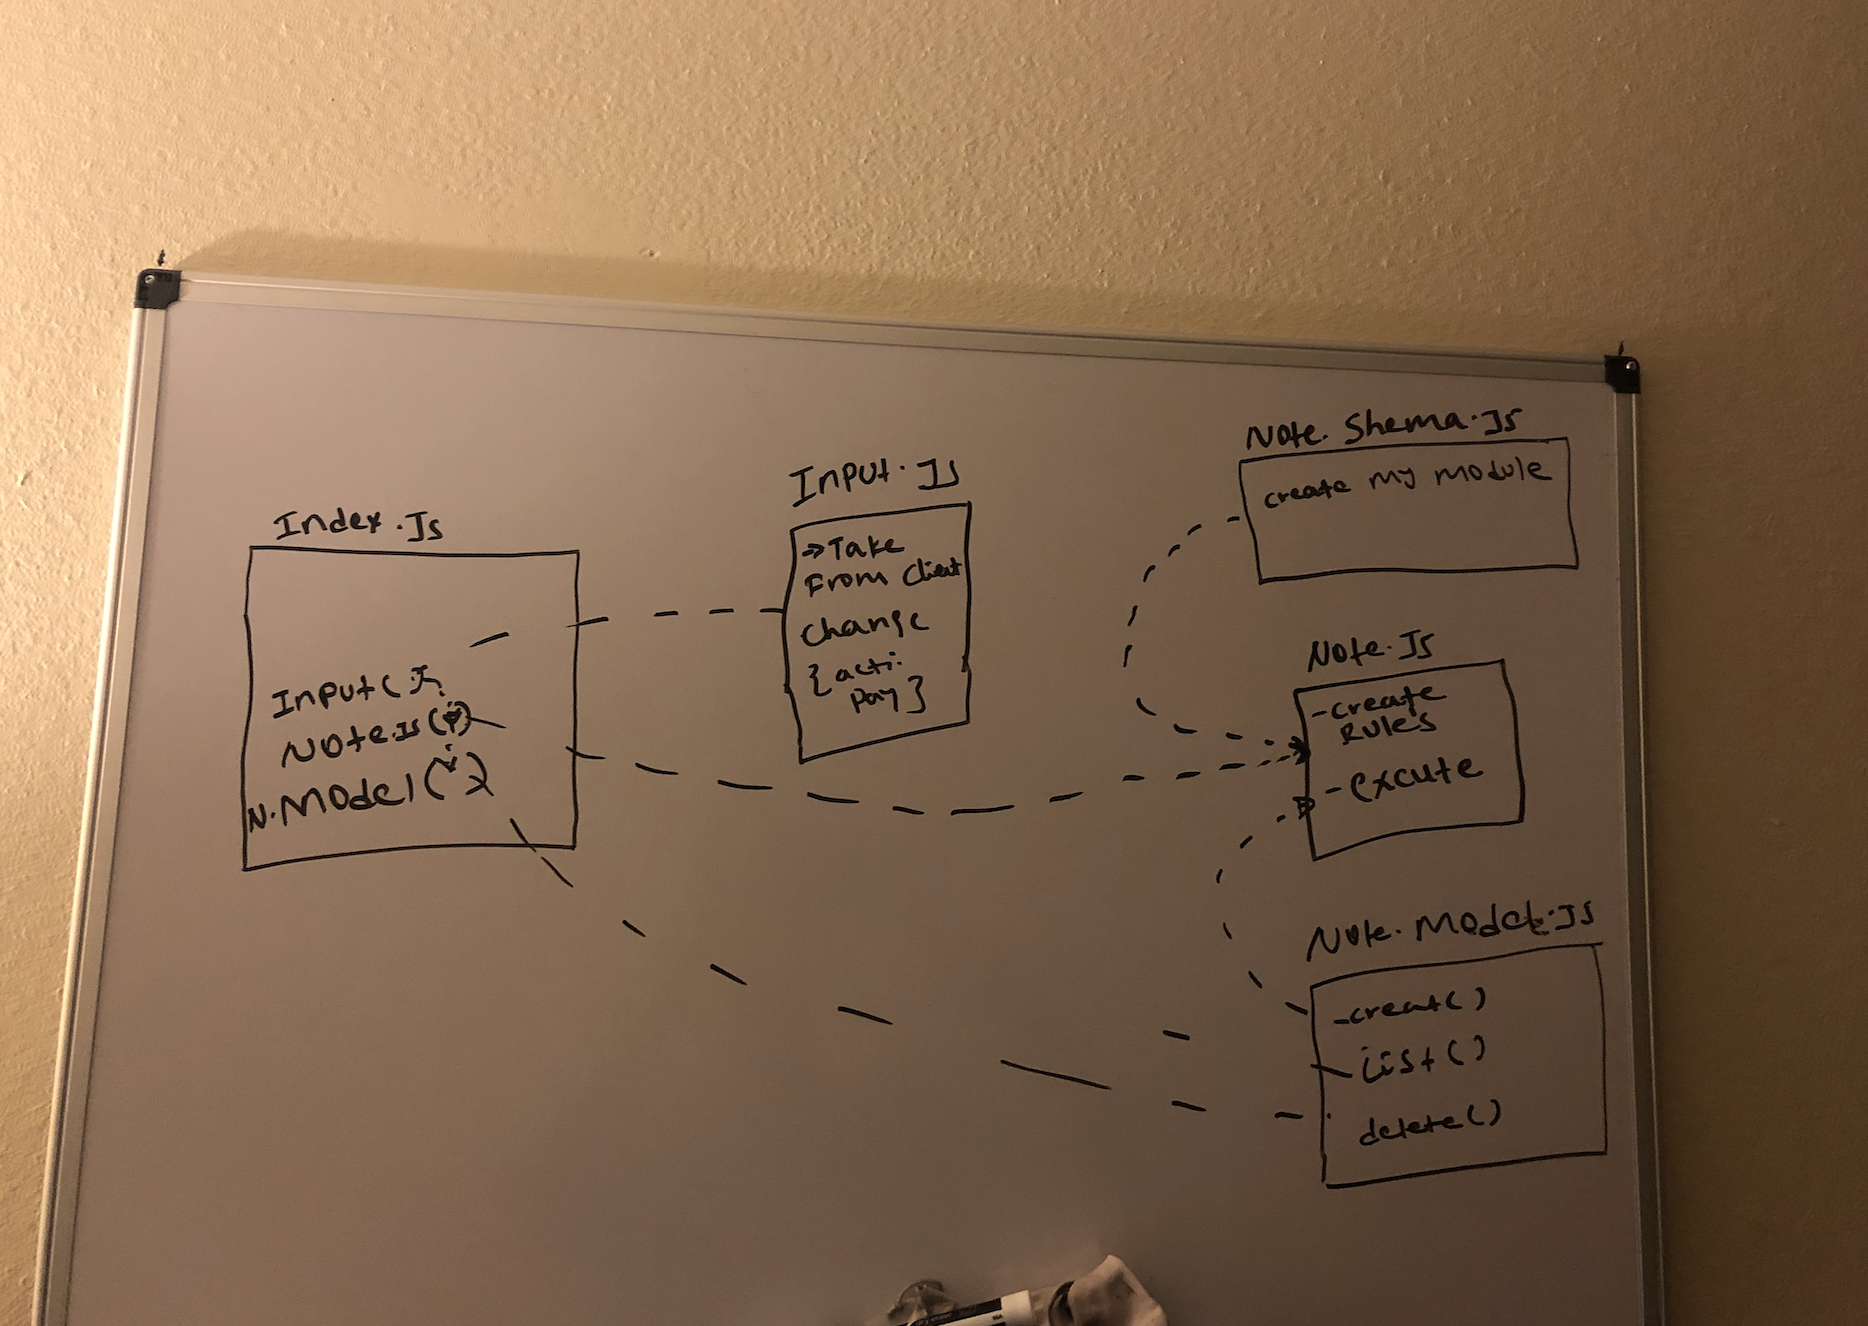 Index.Js
Input( );
Note.Js( )
N.Model( )
Input.Js
→Take
From Client
change
{acti.
Pay}
Note.Shema.Js
create my module
Note.Js
-create
Rules
-excute
Note.Model.Js
-creat()
-list()
delete()